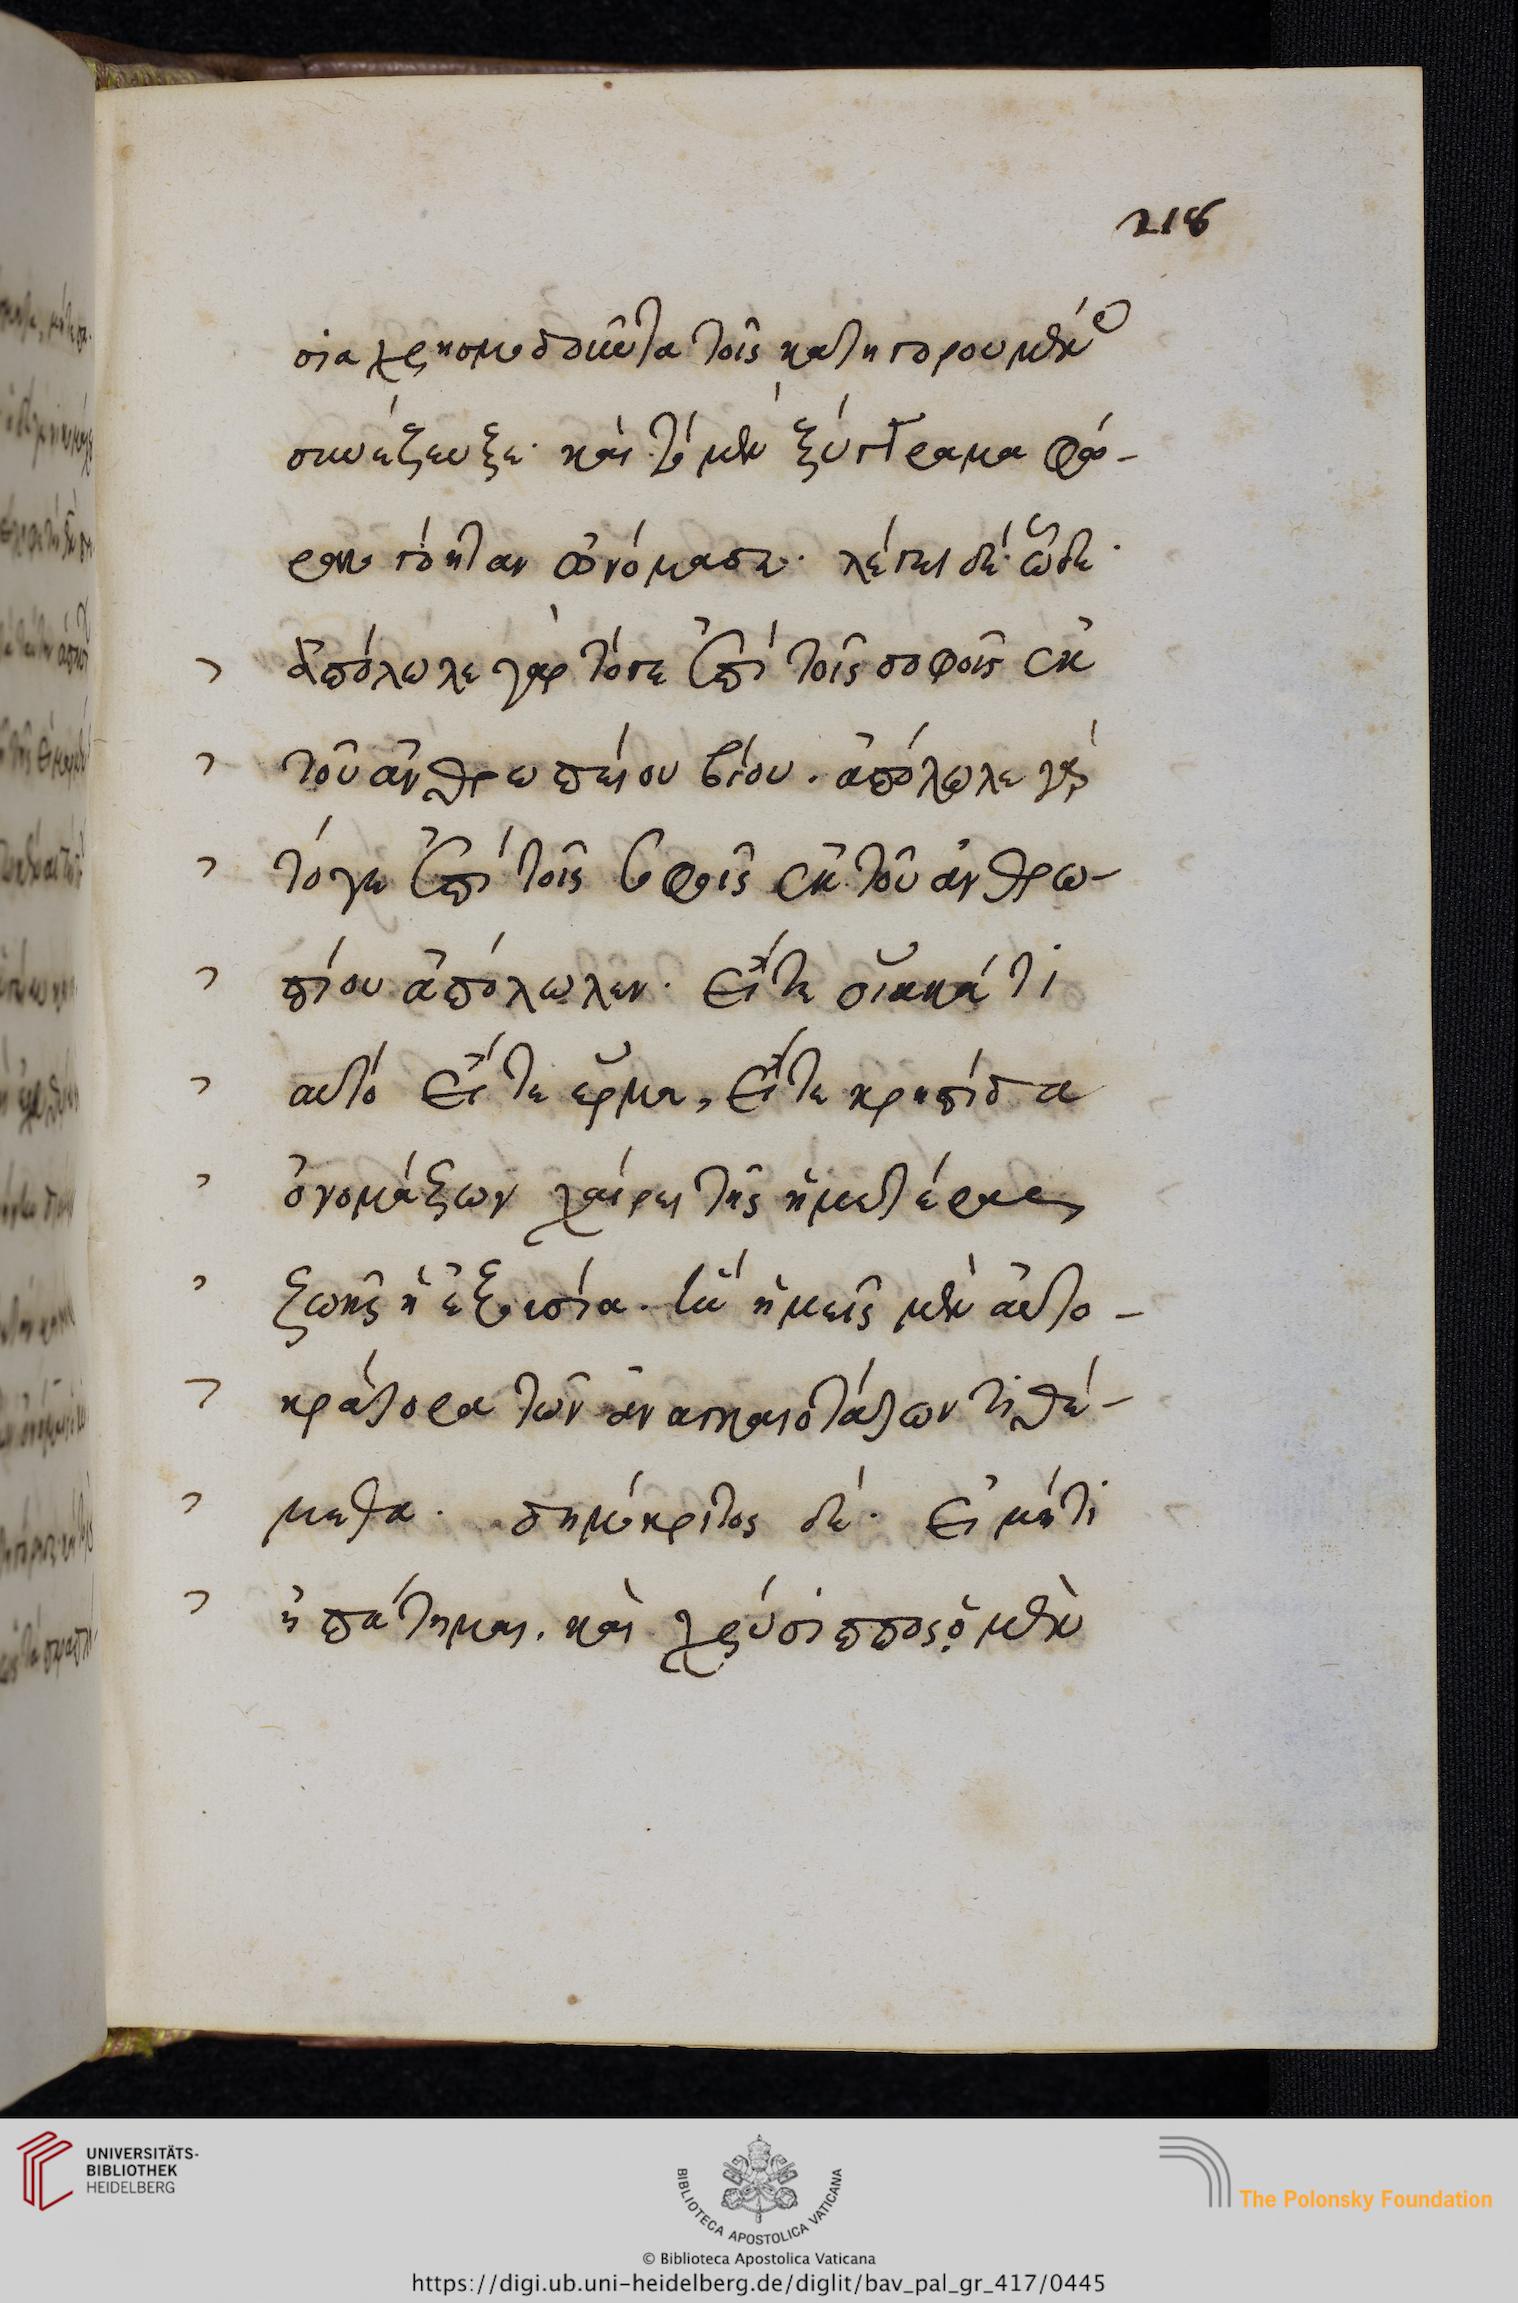 218
σια χρησμωδοῦντα τοῖς κατηγορουμένοις
συνέζευξε· καὶ τὸ μὲν ξύγγραμα φώ-
ραν γοήταν ὠνόμασε· λέγει δὲ ὧδε·
ἀπόλωλε γάρ τόγε ἐπὶ τοῖς σοφοῖς ἐκ
τοῦ ἀνθρωπείου βίου. ἀπόλωλε γάρ
τόγε ἐπὶ τοῖς σοφοῖς ἐκ τοῦ ἀνθρω-
πίου ἀπόλωλεν. εἴτε οἴακά τι
αυτό εἴτε ερμα, εἴτε κρηπίδα
ὀνομάζων χαίρει τῆς ἡμετέρας
ζωῆς ἡ ἐξουσία. ἣν ἡμεῖς μὲν αὐτο-
κράτορα τῶν ἀναγκαιοτάτων τιθέ-
μεθα. δημόκριτος δέ· εἰ μήτι
ἠπάτημαι. καὶ χρύσιππος, ὁ μὲν
UNIVERSITÄTS-
BIBLIOTHEK
HEIDELBERG
BIBLIOTECA APOSTOLICA VATICANA
The Polonsky Foundation
© Biblioteca Apostolica Vaticana
https://digi.ub.uni-heidelberg.de/diglit/bav_pal_gr_417/0445